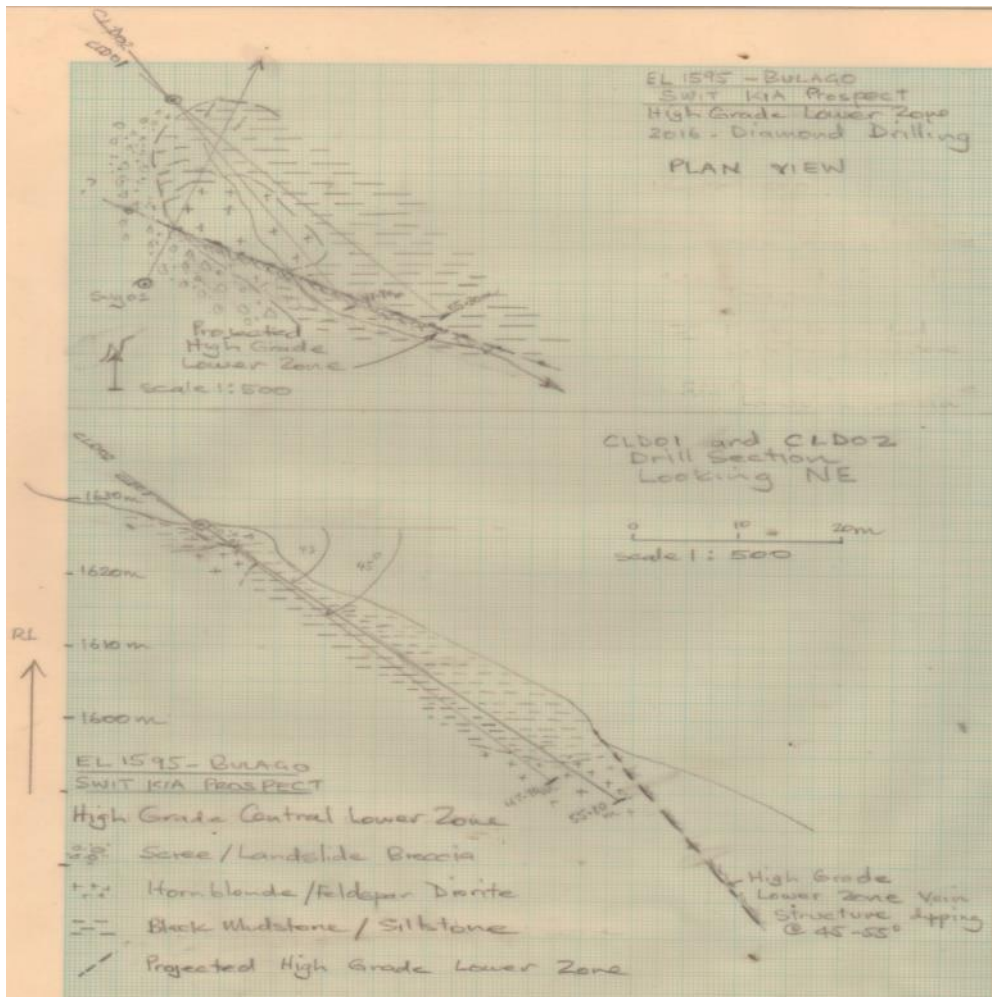 CLD02
CLD01
EL 1595 - BULAGO
SWIT KIA Prospect
High Grade Lower Zone
2016 - Diamond Drilling
PLAN VIEW
?
Projected
High Grade
Lower Zone
N
scale 1:500
CLD01 and CLD02
Drill Section
Looking NE
0 10 20m
scale 1 : 500
CLD02
1630m
1620m
1610m
1600m
45°
RL
EL 1595 - BULAGO
SWIT KIA PROSPECT
High Grade Central Lower Zone
Scree / Landslide Breccia
Hornblende / Feldspar Diorite
Black Mudstone / Siltstone
Projected High Grade Lower Zone
High Grade
Lower Zone Vein
Structure dipping
@ 45-55°